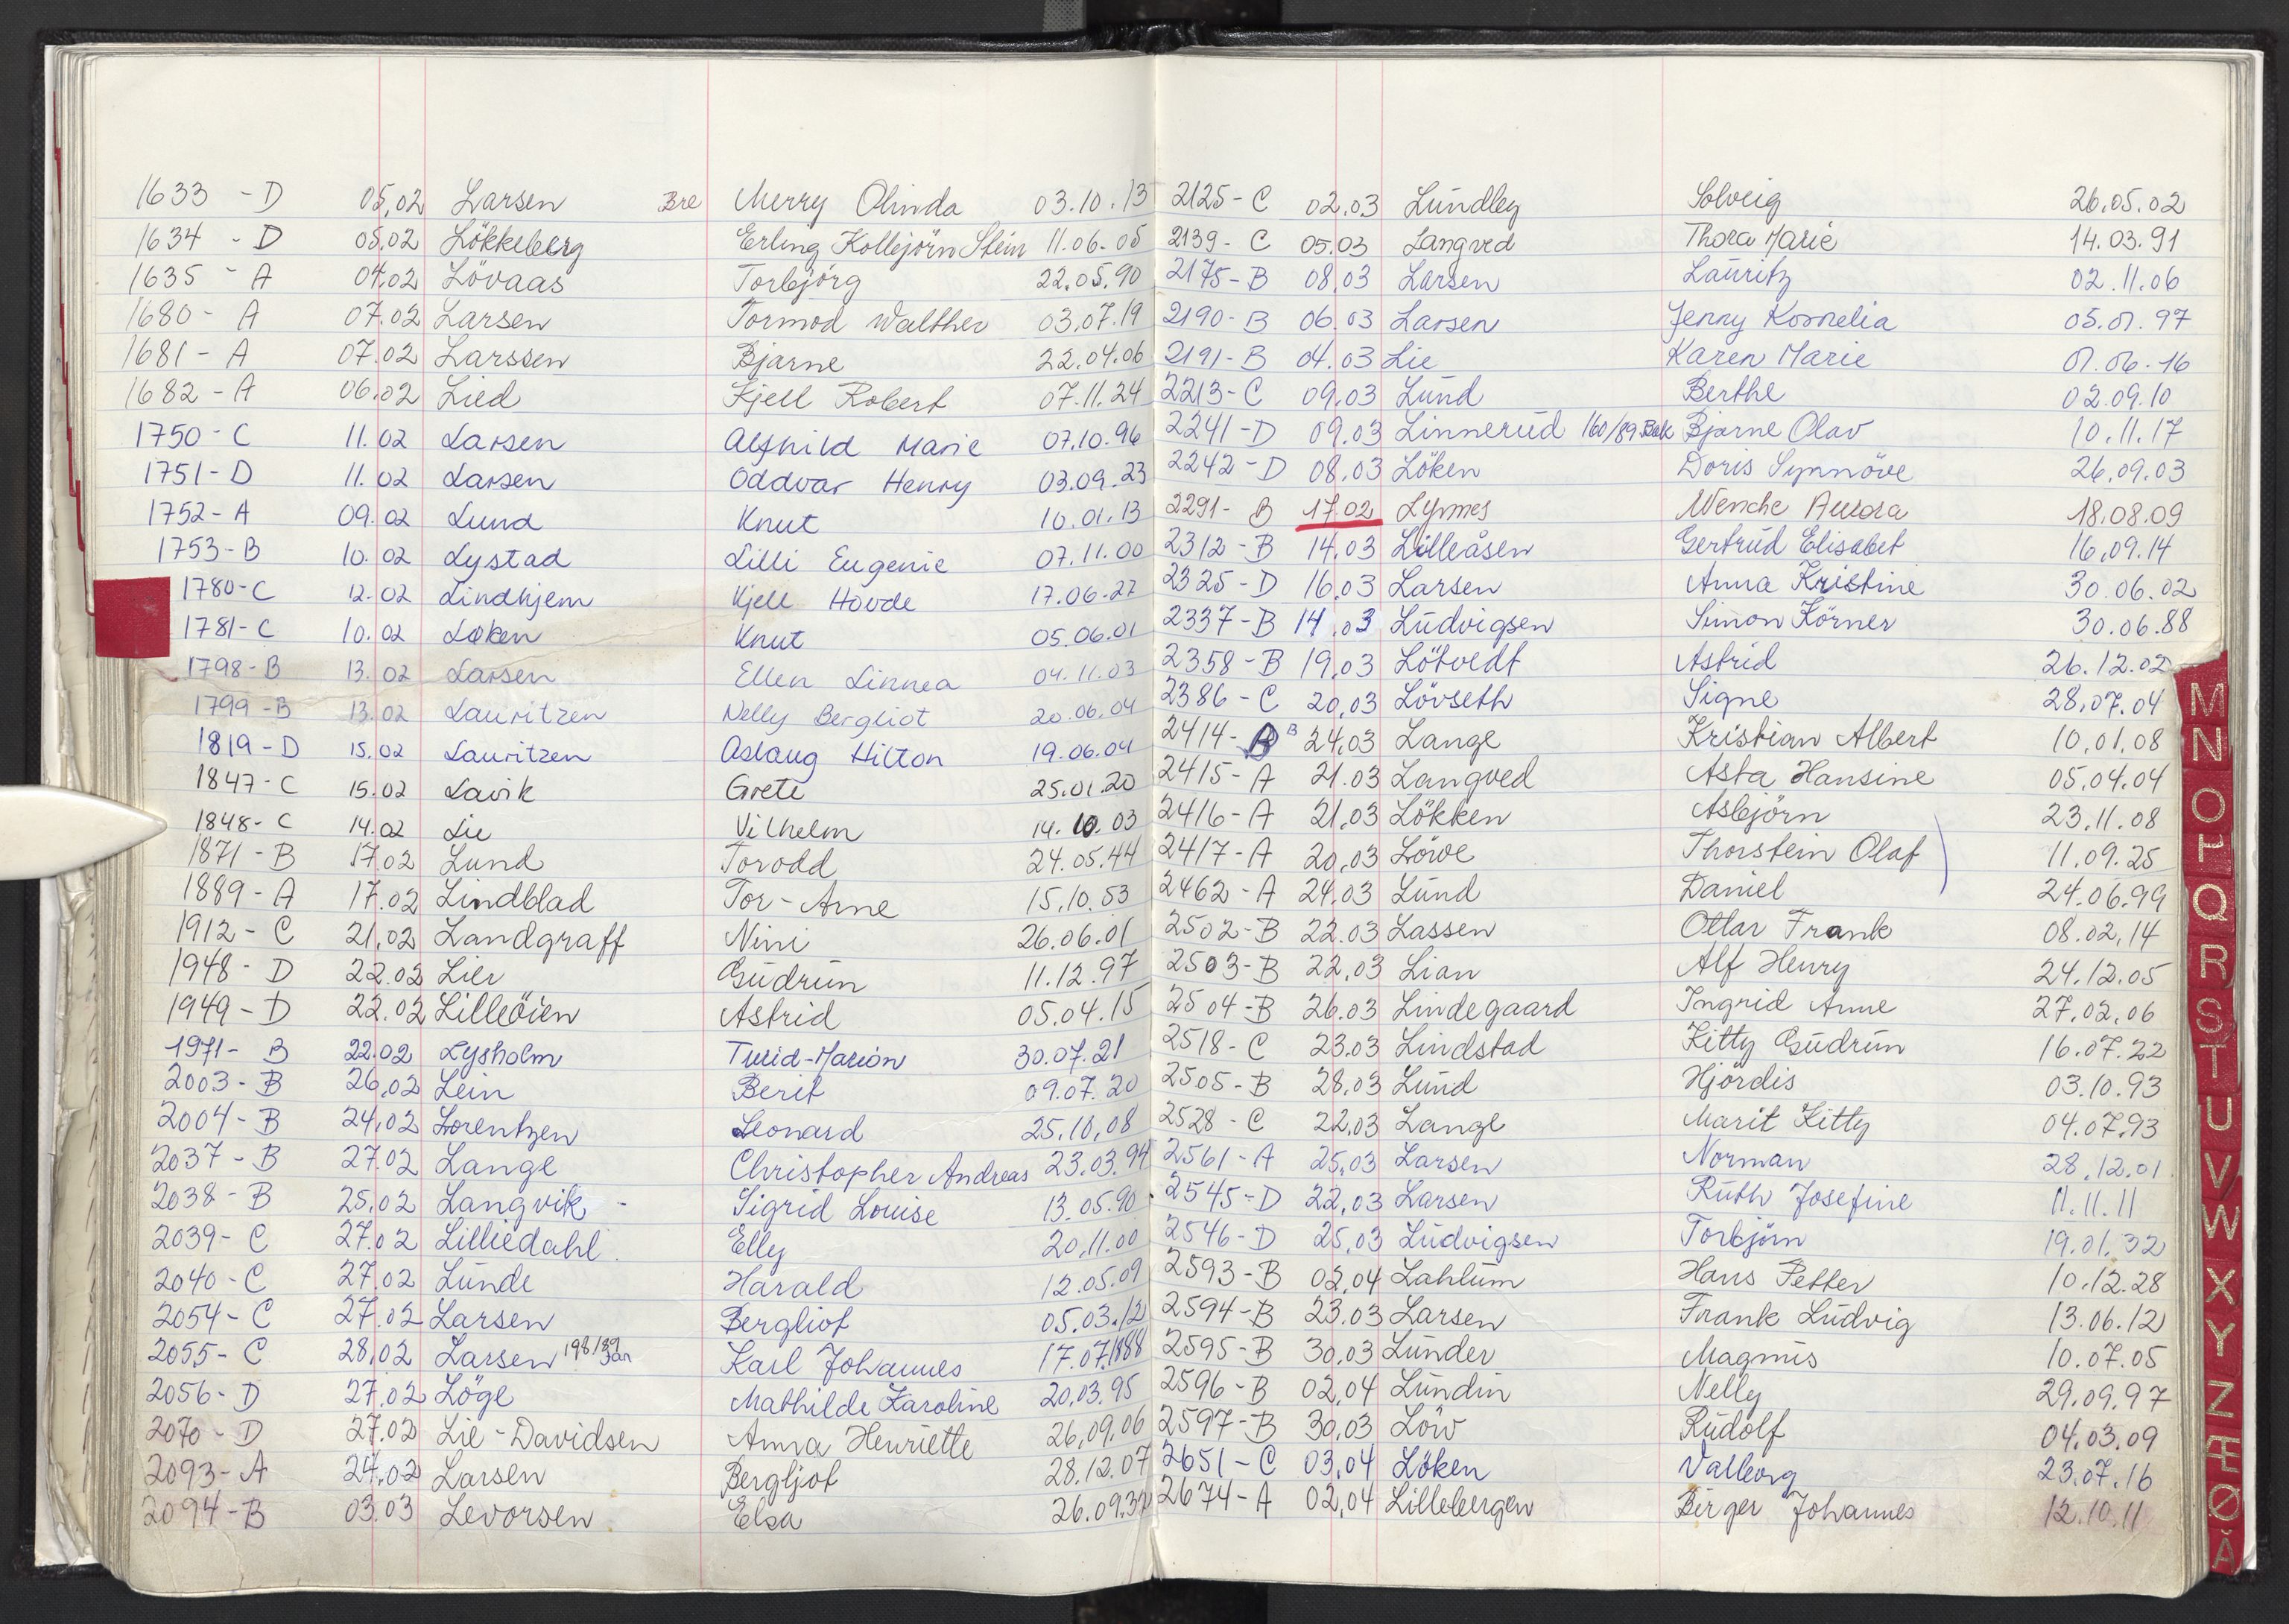 1633 - D 05.02 Larsen Bre Merry Olinda 03.10.13
1634 - D 05.02 Lökkeberg Erling Kollbjörn Stein 11.06.05
1635 - A 04.02 Lövaas Torbjörg 22.05.90
1680 - A 07.02 Larsen Tormod Walther 03.07.19
1681 - A 07.02 Larssen Bjarne 22.04.06
1682 - A 06.02 Lied Kjell Robert 07.11.24
1750 - C 11.02 Larsen Alfhild Marie 07.10.96
1751 - D 11.02 Larsen Oddvar Henry 03.09.23
1752 - A 09.02 Lund Knut 10.01.13
1753 - B 10.02 Lystad Lilli Eugenie 07.11.00
1780 - C 12.02 Lindhjem Kjell Hovde 17.06.22
1781 - C 10.02 Løken Knut 05.06.01
1798 - B 13.02 Larsen Ellen Linnea 04.11.03
1799 - B 13.02 Lauritzen Nelly Bergliot 20.06.04
1819 - D 15.02 Lauritzen Aslaug Hilton 19.06.04
1847 - C 15.02 Lavik Grete 25.01.20
1848 - C 14.02 Lie Vilhelm 14.10.03
1871 - B 17.02 Lund Torodd 24.05.44
1889 - A 17.02 Lindblad Tor-Arne 15.10.53
1912 - C 21.02 Landgraff Nini 26.06.01
1948 - D 22.02 Lier Gudrun 11.12.97
1949 - D 22.02 Lilleöien Astrid 05.04.15
1971 - B 22.02 Lysholm Turid-Marion 30.07.21
2003 - B 26.02 Lein Berit 09.07.20
2004 - B 24.02 Lorentzen Leonard 25.10.08
2037 - B 27.02 Lange Christopher Andreas 23.03.94
2038 - B 25.02 Langvik - Sigrid Louise 13.05.90
2039 - C 27.02 Lilliedahl Elly 20.11.00
2040 - C 27.02 Lunde Harald 12.05.09
2054 - C 27.02 Larsen Bergliot 05.03.12
2055 - C 28.02 Larsen 198/89 Jan Karl Johannes 17.07.1888
2056 - D 27.02 Löge Mathilde Karoline 20.03.95
2070 - D 27.02 Lie-Davidsen Anna Henriette 26.09.06
2093 - A 24.02 Larsen Bergljot 28.12.07
2094 - B 03.03 Levorsen Elsa 26.09.32
2125 - C 02.03 Lundby Solveig 26.05.02
2139 - C 05.03 Langved Thora Marie 14.03.91
2175 - B 08.03 Larsen Lauritz 02.11.06
2190 - B 06.03 Larsen Jenny Kornelia 05.01.97
2191 - B 04.03 Lie Karen Marie 01.06.16
2213 - C 09.03 Lund Berthe 02.09.10
2241 - D 09.03 Linnerud 160/89 Bak Bjarne Olav 10.11.17
2242 - D 08.03 Löken Doris Synnöve 26.09.03
2291 - B 17.02 Lymes Wenche Aurora 18.08.09
2312 - B 14.03 Lilleåsen Gertrud Elisabet 16.09.14
2325 - D 16.03 Larsen Anna Kristine 30.06.02
2337 - B 14.03 Ludvigsen Simon Körner 30.06.88
2358 - B 19.03 Lötvedt Astrid 26.12.02
2386 - C 20.03 Lövseth Signe 28.07.04
2414 - B B 24.03 Lange Kristian Albert 10.01.08
2415 - A 21.03 Langved Asta Hansine 05.04.04
2416 - A 21.03 Lökken Asbjörn 23.11.08
2417 - A 20.03 Löwe Thorstein Olaf 11.09.25
2462 - A 24.03 Lund Daniel 24.06.99
2502 - B 22.03 Lassen Ottar Frank 08.02.14
2503 - B 22.03 Lian Alf Henry 24.12.05
2504 - B 26.03 Lindegaard Ingrid Anne 27.02.06
2518 - C 23.03 Lindstad Kitty Gudrun 16.07.22
2505 - B 28.03 Lund Hjördis 03.10.93
2528 - C 22.03 Lange Marit Kitty 04.07.93
2561 - A 25.03 Larsen Norman 28.12.01
2545 - D 22.03 Larsen Ruth Josefine 11.11.11
2546 - D 25.03 Ludvigsen Torbjörn 19.01.32
2593 - B 02.04 Lahlum Hans Petter 10.12.28
2594 - B 23.03 Larsen Frank Ludvig 13.06.12
2595 - B 30.03 Lunder Magnus 10.07.05
2596 - B 02.04 Lundin Nelly 29.09.97
2597 - B 30.03 Löw Rudolf 04.03.09
2651 - C 03.04 Löken Valborg 23.07.16
2674 - A 02.04 Lillebergen Birger Johannes 12.10.11
M
N
O
P
Q
R
S
T
U
V
W
X
Y
Z
Æ
Ø
Å